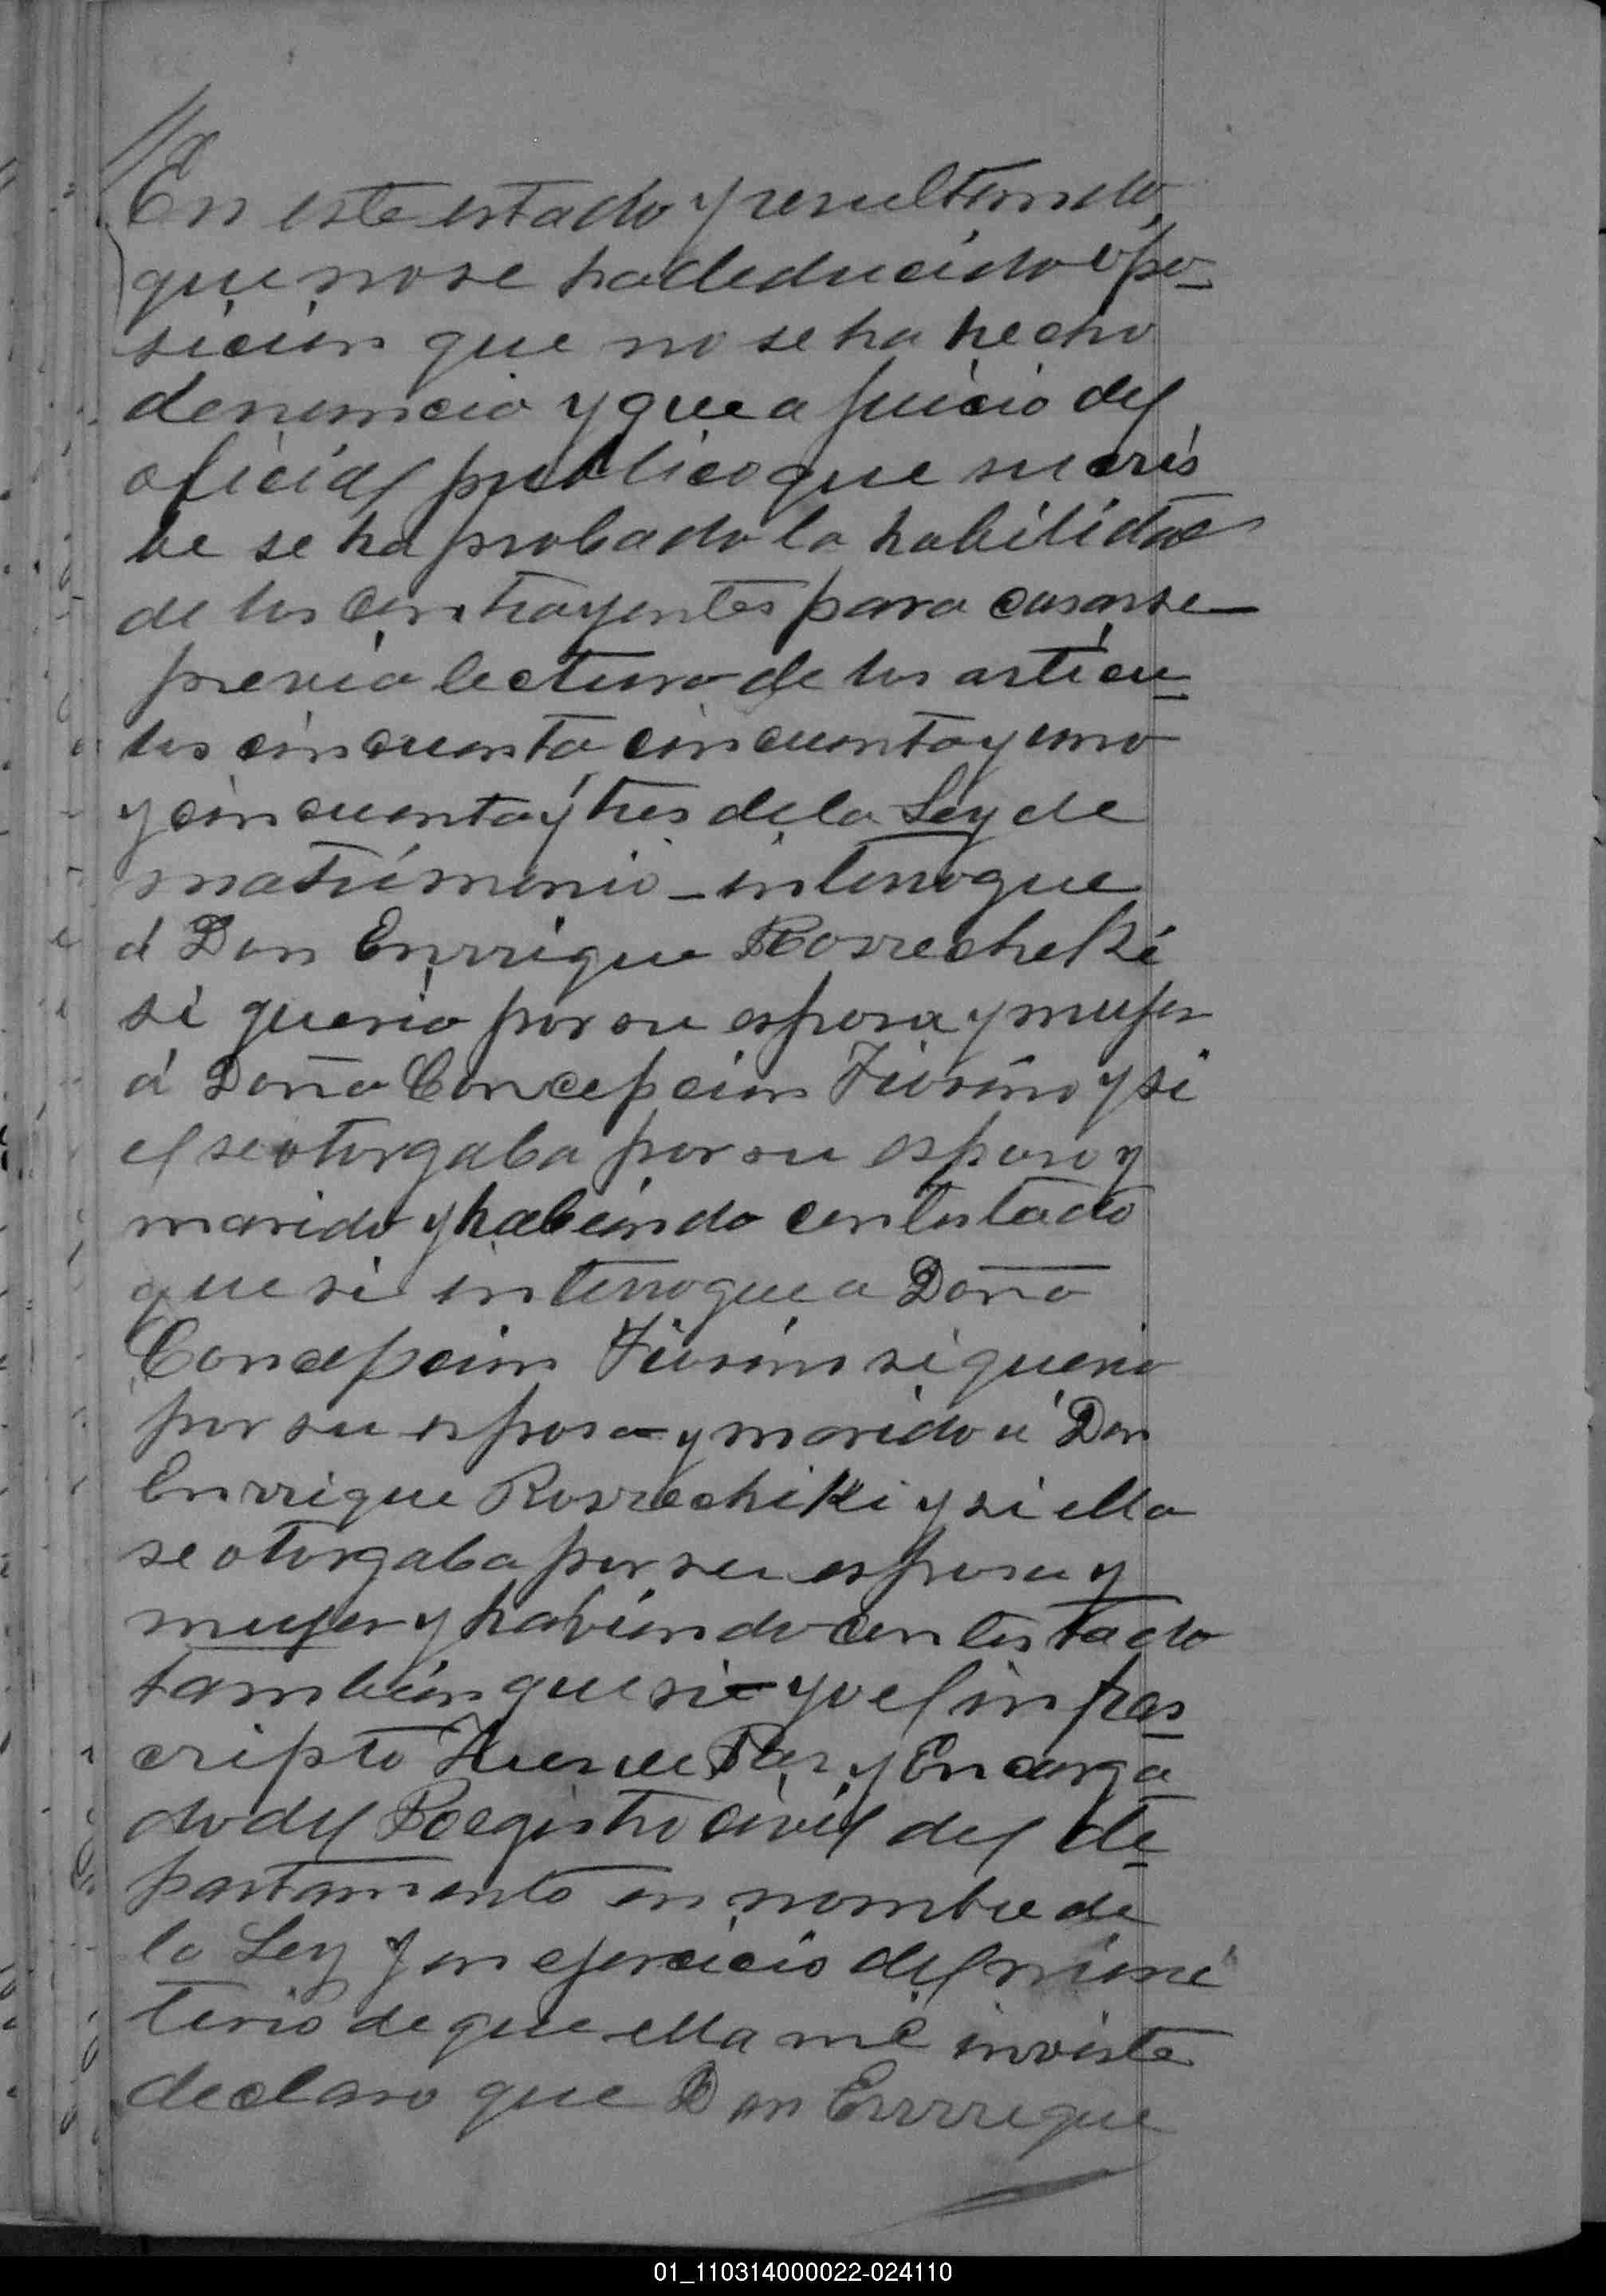 En este estado y resultando
que no se ha deducido opo-
sicion que no se ha hecho
denuncia y que a juicio del
oficial publico que sucris
be se ha probado la habilidad
de los contrayentes para casarse
previa lectura de los articu-
los cincuenta cincuenta y uno
y cincuenta y tres de la Ley de
matrimonio - interrogue
á Don Enrrique Rosrecheki
si queria por su esposa y mujer
á Doña Concepcion y si
el se otorgaba por su esposo y
marido y habiendo contestado
que si interrogue a Doña
Concepcion si queria
por su esposo y marido á Don
Enrrique Rosrechiki y si ella
se otorgaba por su esposa y
muger y habiendo contestado
tambien que si - yo el infras-
cripto Juez de Paz y Encarga
do del Registro Civil del de-
partamento en nombre de
la Ley y en ejercicio del minis
terio de que ella me inviste
declaro que Don Enrrique
01_110314000022-024110